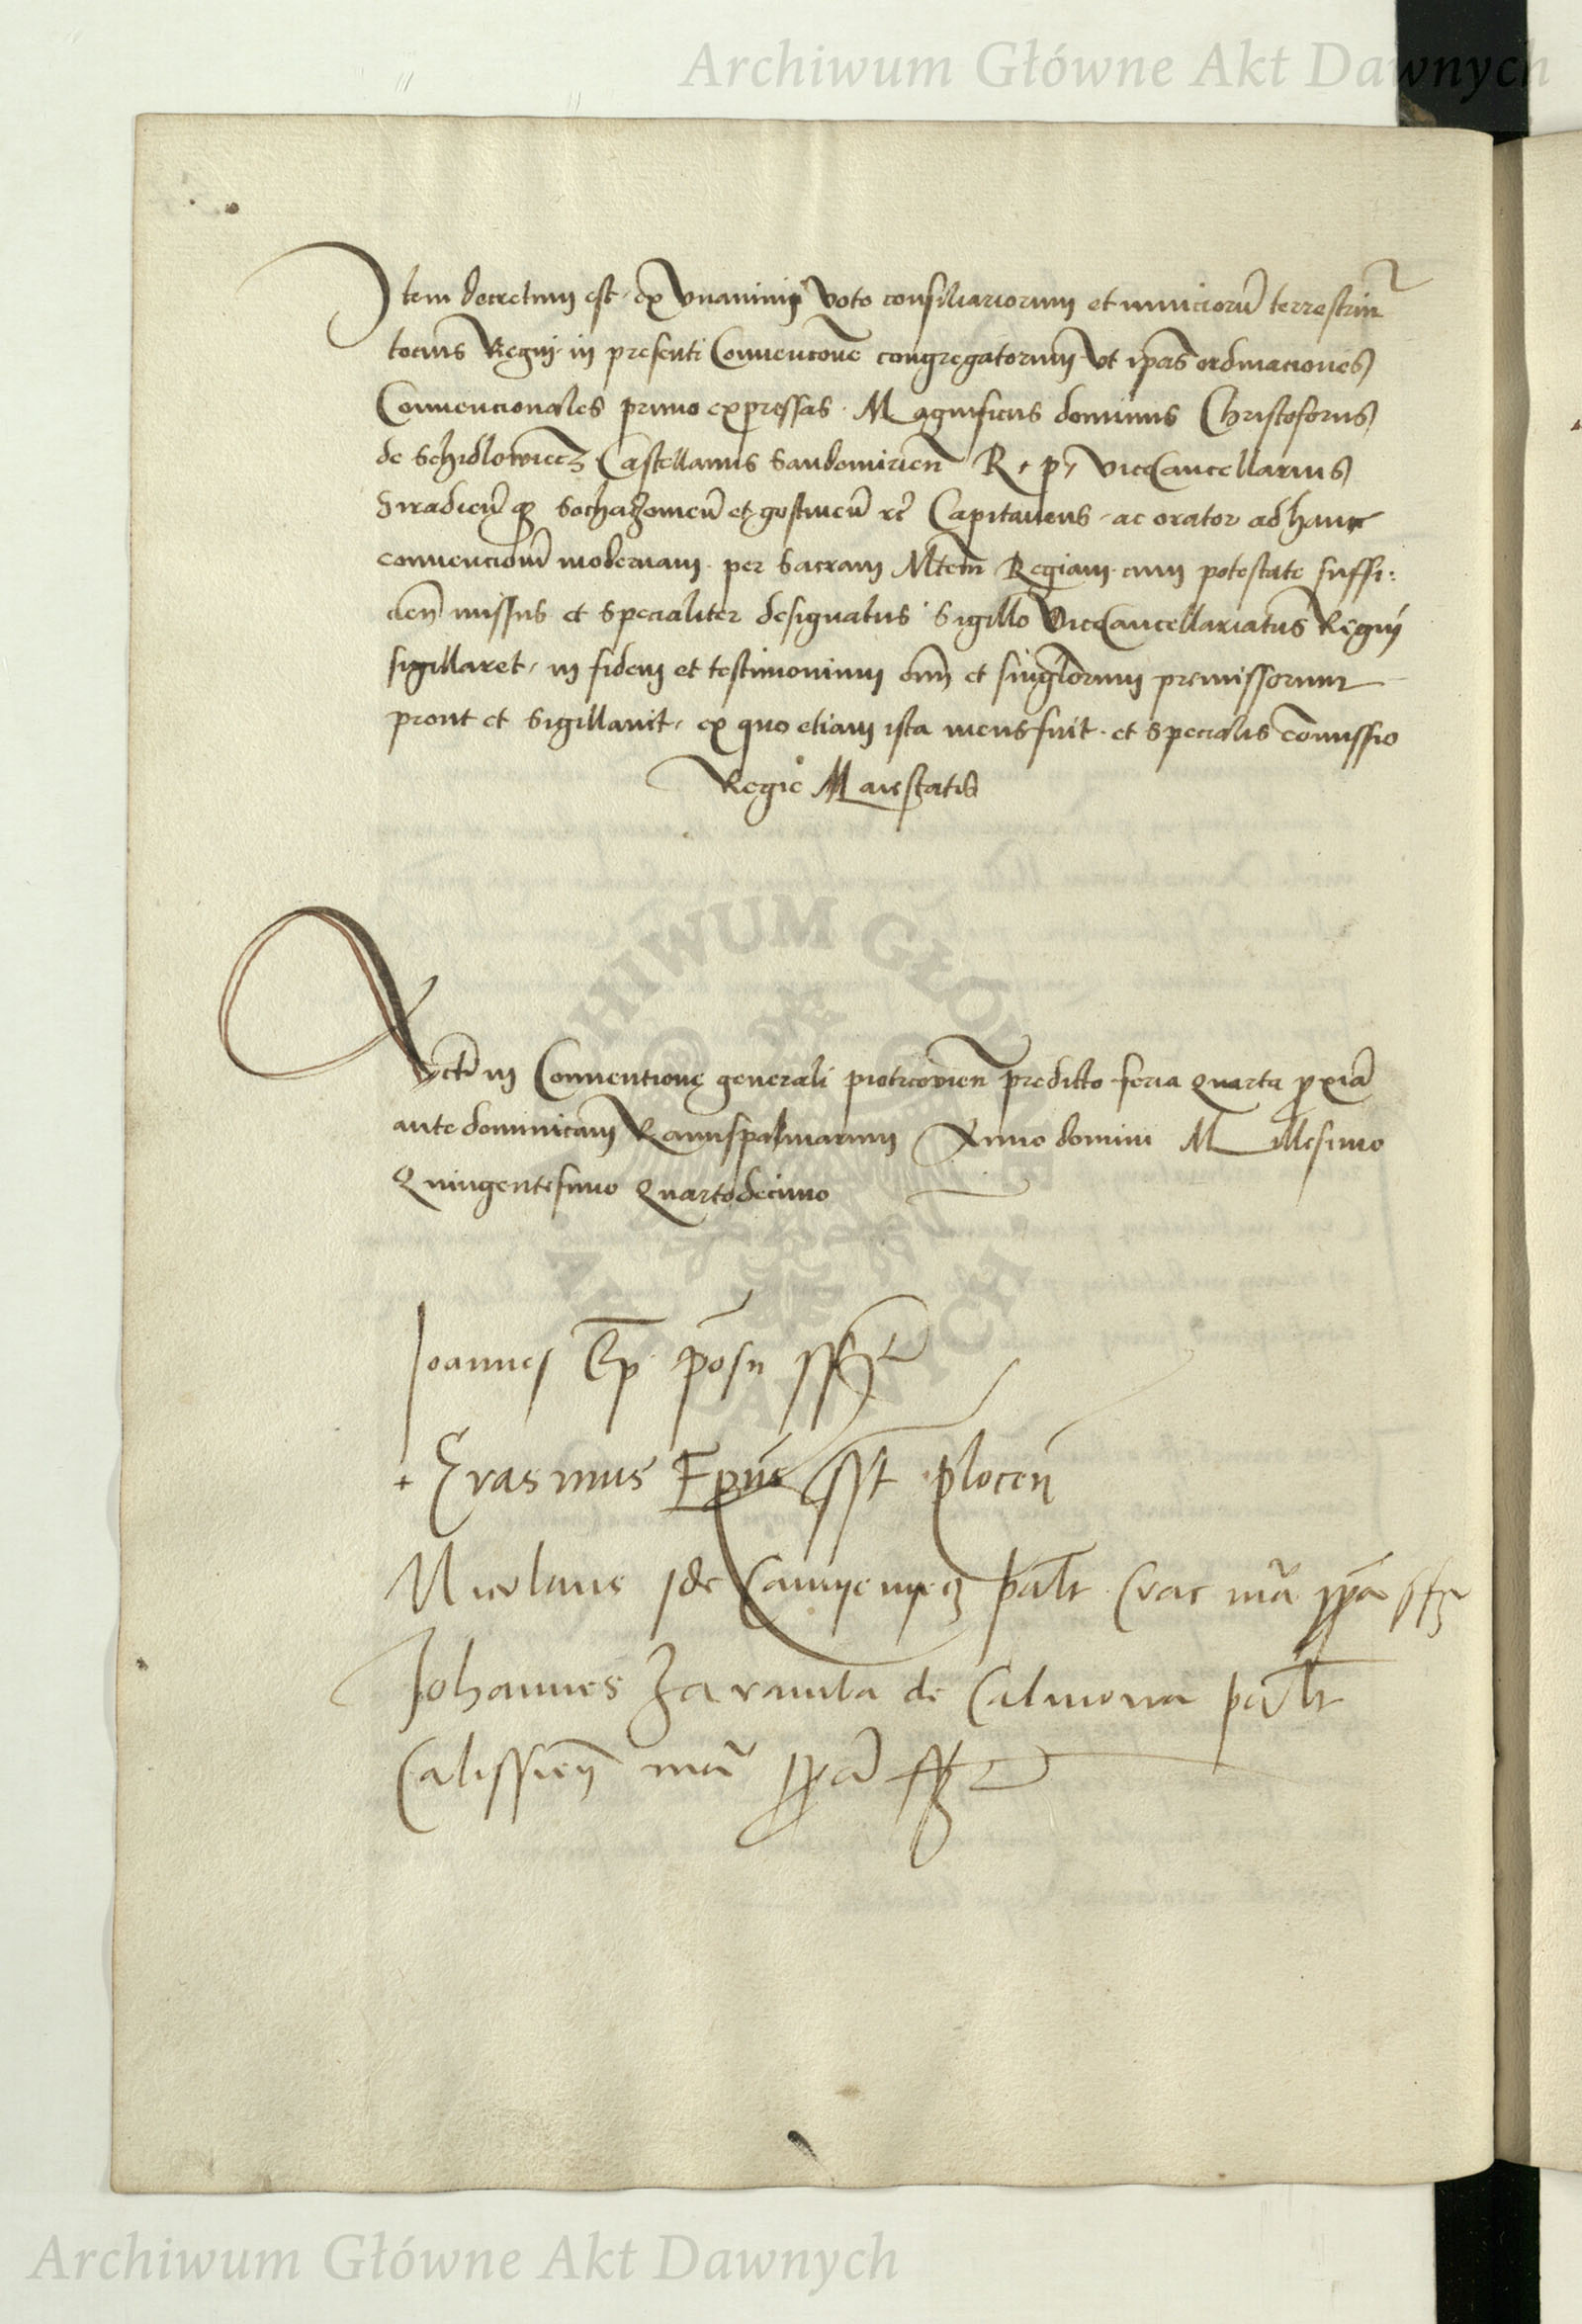 Archiwum Główne Akt Dawnych
Item decretum est, ex vnanimi voto consiliariorum et nuncciorum terrestrium
tocius Regni in presenti Conuencione congregatorum, vt ipsas ordinaciones
Conuencionales primo expressas. Magnificus dominus Christoforus
de Schidlowiecz Castellanus Sandomirien R. p. viceCancellarius
Siradien Sochaczowien et gostinen Capitaneus, ac orator ad hanc
conuencionem modernam per Sacram Mtem Regiam cum potestate suffi:
cien missus et specialiter designatus Sigillo viceCancellariatus Regni
sigillaret, in fidem et testimonium omn et singulorum premissorum
prout et Sigillauit, ex quo etiam ista mens fuit et specialis comissio
Regie Maiestatis
Actum in Conuentione generali piotrcovien predicto feria quarta proxia
ante dominicam Ramispalmarum Anno domini Millesimo
Quingentesimo Quartodecimo
Ioannes Ep posn sst
+ Erasmus Epus sst plocen
Nicolaus de Camyenyecz palt Crac manu ppa sst
Johannes Zaramba de Calinowa palt
Calissien manu ppa sst
ARCHIWUM GŁÓWNE AKT DAWNYCH
Archiwum Główne Akt Dawnych